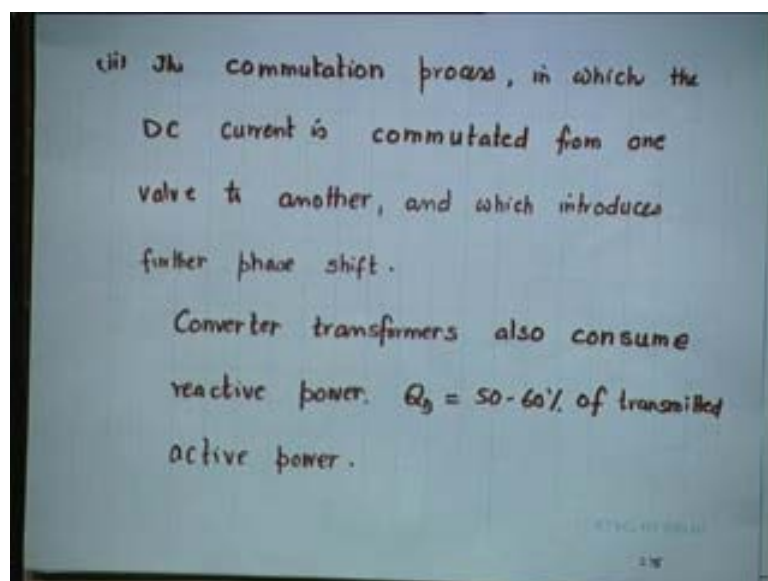 (ii) The commutation process, in which the
DC current is commutated from one
valve to another, and which introduces
further phase shift.
Converter transformers also consume
reactive power. Qd = 50-60% of transmitted
active power.